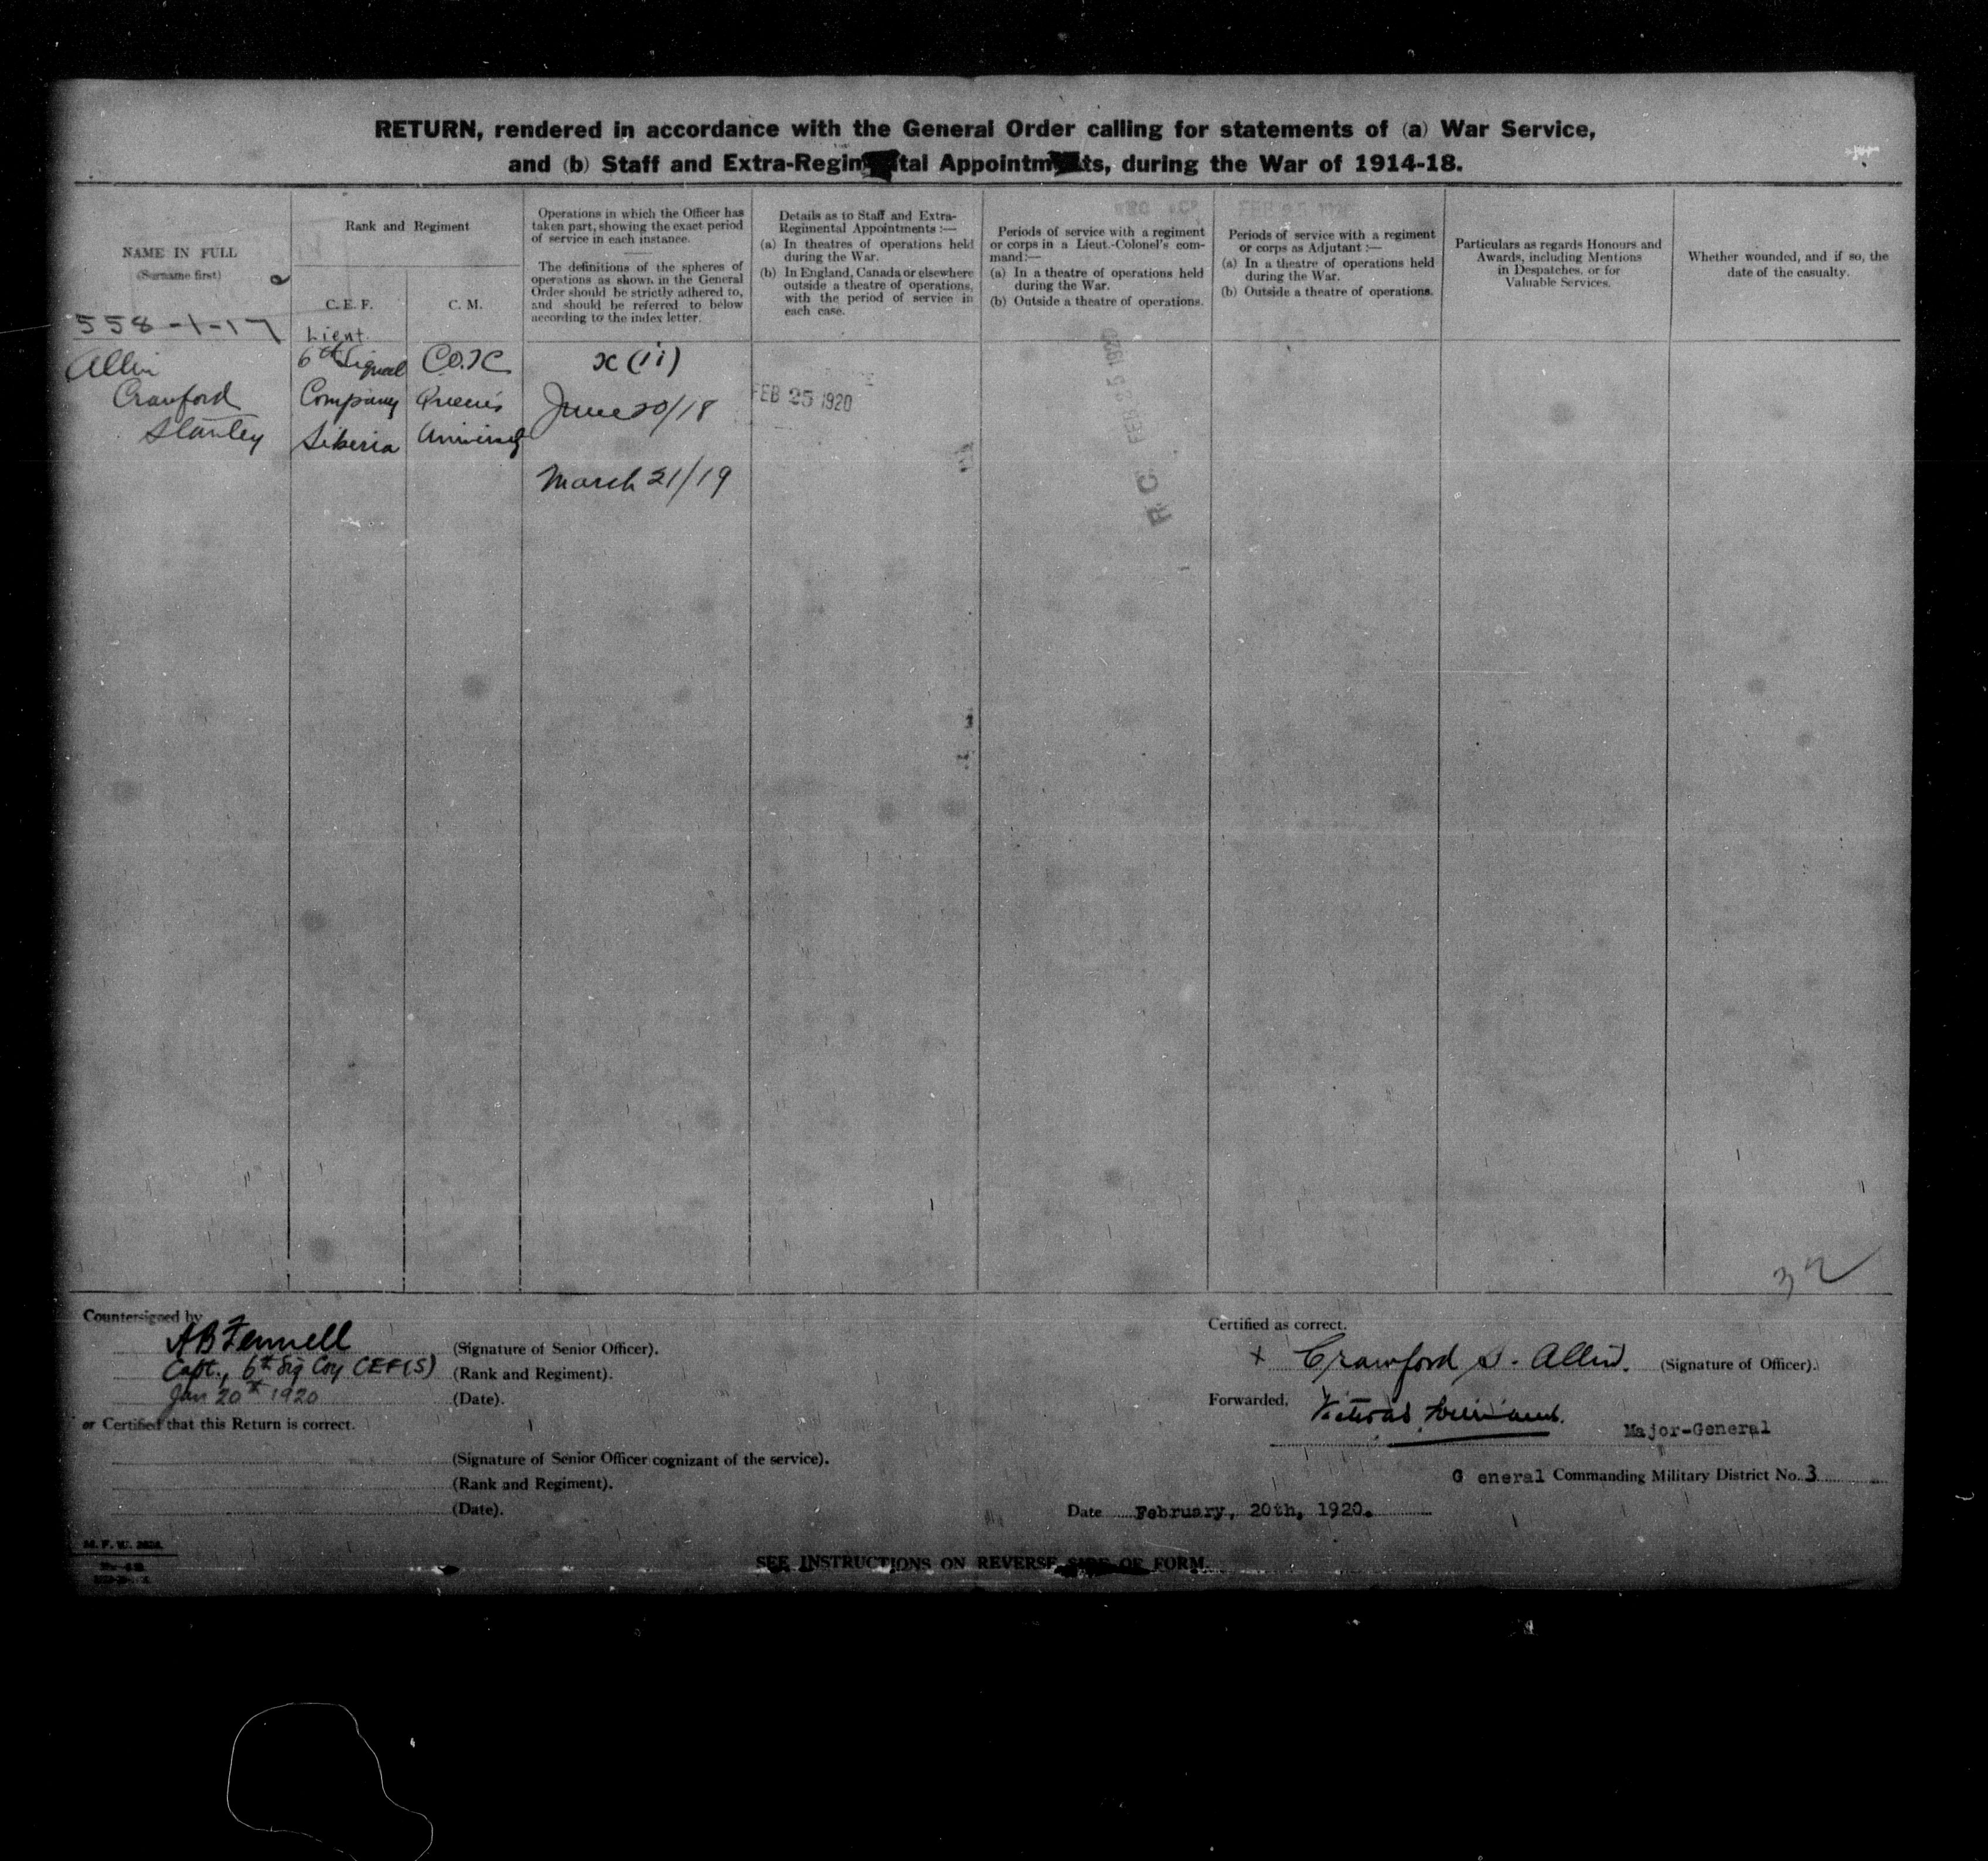 RETURN, rendered in accordance with the General Order calling for statements of (a) War Service,
and (b) Staff and Extra-Regimental Appointments, during the War of 1914-18.
NAME IN FULL
(Surname first)
558-1-17
Rank and Regiment
C. E. F.
C. M.
Operations in which the Officer has
taken part, showing the exact period
of service in each instance.
The definitions of the spheres of
operations as shown in the General
Order should be strictly adhered to,
and should be referred to below
according to the index letter.
Details as to Staff and Extra-
Regimental Appointments :—
(a) In theatres of operations held
during the War.
(b) In England, Canada or elsewhere
outside a theatre of operations,
with the period of service in
each case.
Periods of service with a regiment
or corps in a Lieut.-Colonel's com-
mand:—
(a) In a theatre of operations held
during the War.
(b) Outside a theatre of operations.
FEB 25 1920
Periods of service with a regiment
or corps as Adjutant :—
(a) In a theatre of operations held
during the War.
(b) Outside a theatre of operations.
Particulars as regards Honours and
Awards, including Mentions
in Despatches, or for
Valuable Services.
Whether wounded, and if so, the
date of the casualty.
Allin
Crawford
Stanley
Lieut.
6th Signal
Company
Siberia
Queen's
University
x (ii)
June 20/18
March 21/19
FEB 25 1920
R.C. FEB 25 1920
32
Countersigned by
(Signature of Senior Officer).
Capt., 6th Sig Coy CEF(S) (Rank and Regiment).
Jan 20th 1920 (Date).
or Certified that this Return is correct.
(Signature of Senior Officer cognizant of the service).
(Rank and Regiment).
(Date).
Certified as correct.
x Crawford S. Allin. (Signature of Officer).
Forwarded,
Major-General
General Commanding Military District No. 3
Date February, 20th, 1920.
SEE INSTRUCTIONS ON REVERSE SIDE OF FORM.